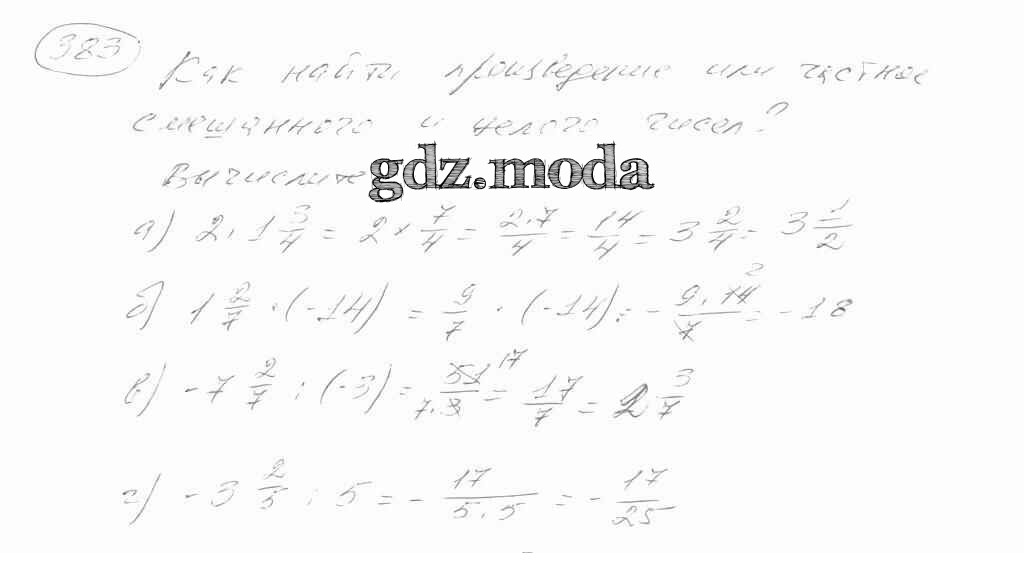 383
Как найти произведение или частное
смешанного и целого чисел?
Вычислите
gdz.moda
а) 2 · 1 3/4 = 2 × 7/4 = 2·7/4 = 14/4 = 3 2/4 = 3 1/2
б) 1 2/7 · (-14) = 9/7 · (-14) = - 9·14 2/7 = -18
в) -7 2/7 : (-3) = 51 17/7·3 = 17/7 = 2 3/7
г) -3 2/5 : 5 = - 17/5·5 = - 17/25